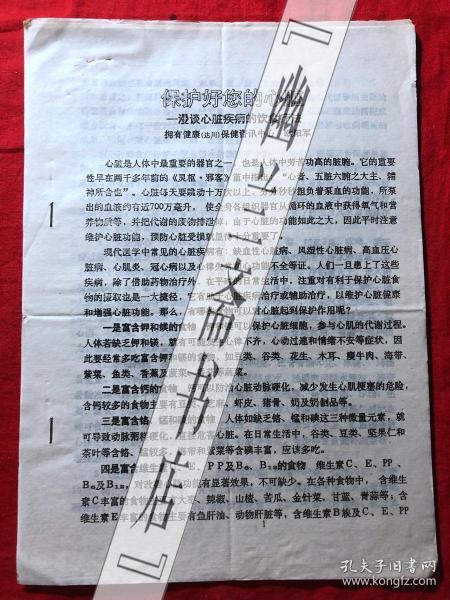 保护好您的心脏
—漫谈心脏疾病的饮食
拥有健康(达川)保健资讯中心 阳军
心脏是人体中最重要的器官之一 也是人体中劳苦功高的脏腑。它的重要
性早在两千多年前的《灵枢·邪客》篇中指出: “心者、五脏六腑之大主、精
神所舍也”。心脏每天要跳动十万次以上、分分秒秒担负着泵血的功能,所泵
出的血液约有近700万毫升, 使全身各组织器官从循环的血液中获得氧气和营
养物质等,并把代谢的废物排泄掉,由于心脏的功能如此之大,因此平时注意
维护心脏功能,预防心脏受损就显得十分重要了。
现代医学中常见的心脏疾病有:缺血性心脏病、风湿性心脏病、高血压心
脏病、心肌炎、冠心病以及心律失 心功能不全等证。人们一旦患上了这些
疾病,除了借助药物治疗外,在平时的日常生活中,注重对有利于保护心脏食
物的摄取也是一大捷径,它有助于心脏疾病治疗或辅助治疗,以维护心脏健康
和增强心脏功能。那么,有哪些食物可以对心脏起到保护作用呢?
一是富含钾和镁的食物 可以保护心脏细胞,参与心肌的代谢过程。
人体若缺乏钾和镁,就有可能发生心律不齐,心动过速和情绪不安等症状,因
此要经常多吃富含钾和镁的食物,如豆类、谷类、花生、木耳、瘦牛肉、海带、
紫菜、鱼类、香蕉及菠菜
二是富含钙的食物 可以防治心脏动脉硬化,减少发生心肌梗塞的危险,
含钙较多的食物主要有豆 麻、虾皮、猪骨、奶及奶制品等。
三是富含铬、锰和碘的食物 人体如缺乏铬、锰和碘这三种微量元素,就
可导致动脉粥样硬化,直接危害心脏。在日常生活中,谷类、豆类、坚果仁和
茶叶等含铬、锰较多,海带和紫菜等含碘丰富,应该多吃。
四是富含维生素C、E、PP及B₆、B₁₂的食物 维生素C、E、PP、
B₆及B₁₂,对改善心 功能有显著效果,不可缺少。在各种食物中,含维生
素C丰富的食物 大枣、辣椒、山楂、苦瓜、金针菜、甘蓝、青蒜等;含
维生素E丰富的食物主要有鱼肝油、动物肝脏等,含维生素B族及C、E、PP
1
孔夫子旧书网
www.kongfz.com